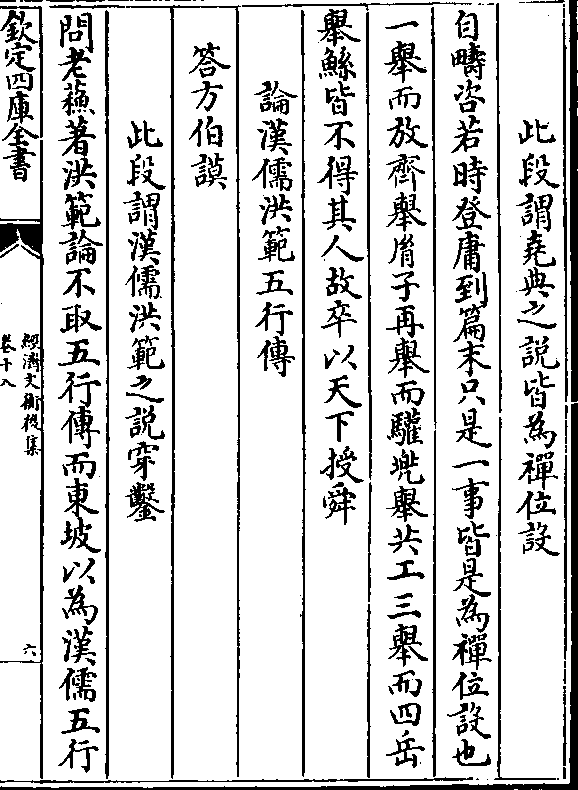 此段謂堯典之說皆為禪位設
自疇咨若時登庸到篇末只是一事皆是為禪位設也
一舉而放齊舉胤子再舉而驩兠舉共工三舉而四岳
舉鯀皆不得其人故卒以天下授舜
論漢儒洪範五行傳
答方伯謨
此段謂漢儒洪範之說穿鑿
問老蘓著洪範論不取五行傳而東坡以為漢儒五行
欽定四庫全書
經濟文衡後集
卷十八
六